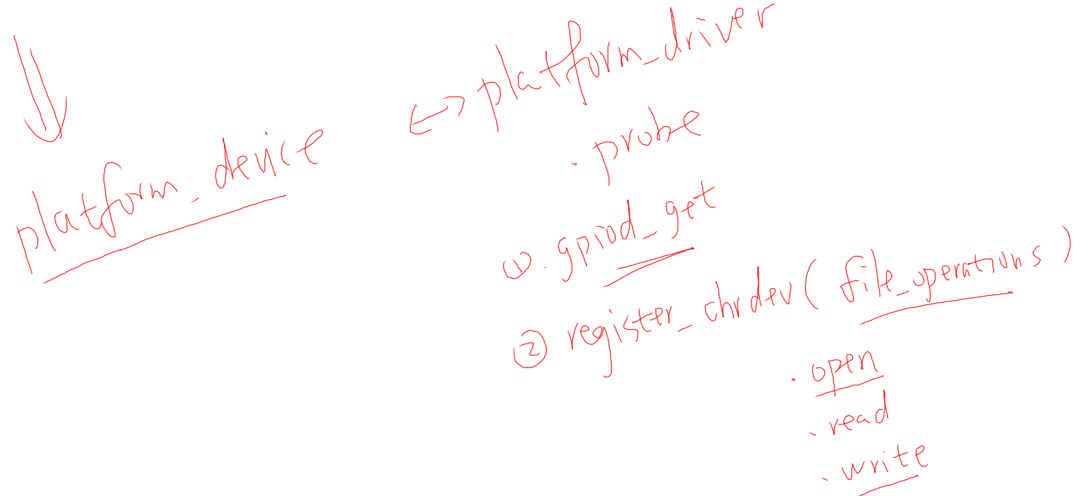 platform_device <-> platform_driver
.probe
①. gpiod_get
② register_chrdev( file_operations )
.open
.read
.write